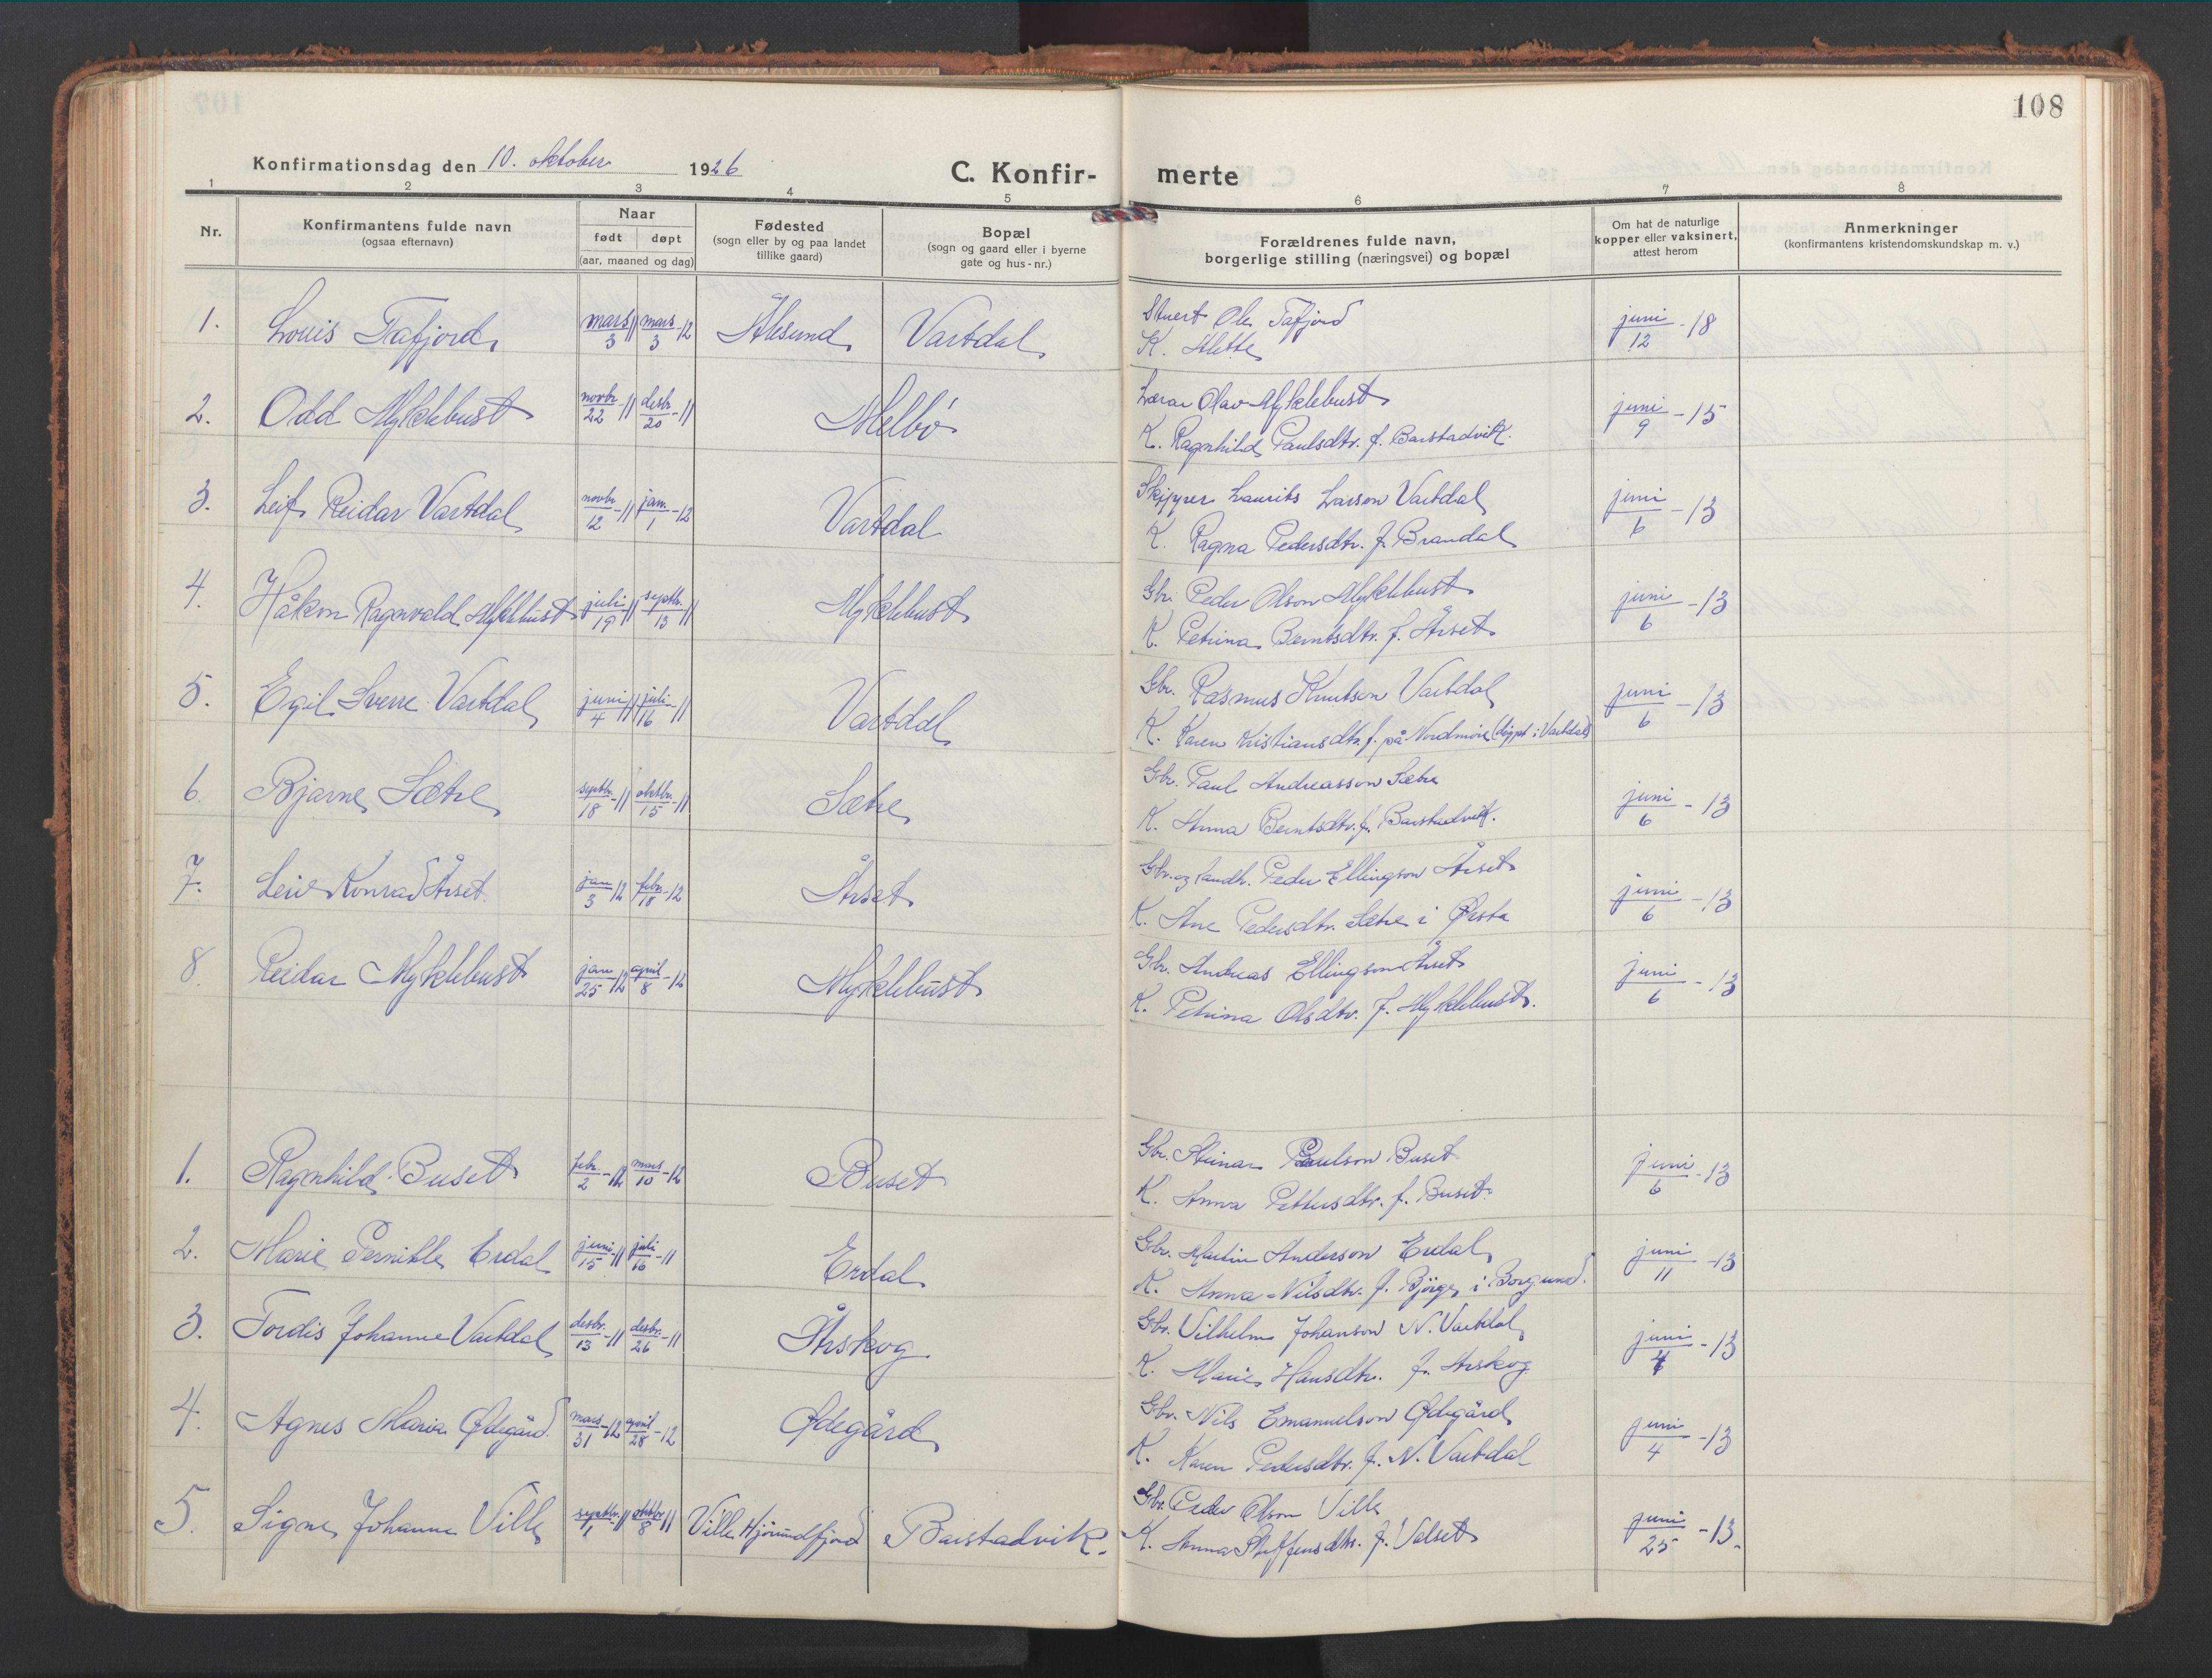 108
Konfirmationsdag den 10. oktober 1926
C. Konfirmerte
1 2 3 4 5 6 7 8
Nr.
Konfirmantens fulde navn
(ogsaa efternavn)
Naar
født døpt
(aar, maaned og dag)
Fødested
(sogn eller by og paa landet
tillike gaard)
Bopæl
(sogn og gaard eller i byerne
gate og hus-nr.)
Forældrenes fulde navn,
borgerlige stilling (næringsvei) og bopæl
Om hat de naturlige
kopper eller vaksinert,
attest herom
Anmerkninger
(konfirmantens kristendomskundskap m. v.)
1. Louis Tafjord mars/3 11 mars/3-12 Ålesund Vartdal
Stuert Ole Tafjord
K. Mette
juni/12-18
2. Odd Myklebust novbr/22-11 desbr/20-11 Melbö
Lærar Olav Myklebust
K. Ragnhild Paulsdtr. f. Barstadvik.
juni/9-15
3. Leif Reidar Vartdal novbr/12-11 jan./1-12 Vartdal
Skipper Laurits Larson Vartdal
K. Ragna Pedersdtr. f. Brandal
juni/6-13
4. Håkon Ragnvald Myklebust juli/19-11 septbr./13-11 Myklebust
Gbr. Peder Olson Myklebust
K. Petrina Berntsdtr. f. Årset
juni/6-13
5. Egil Sverre Vartdal juni/4-11 juli/16-11 Vartdal
Gbr. Rasmus Knutson Vartdal
K. Karen Kristiansdtr. f. på Nordmöre (döypt i Vartdal)
juni/6-13
6. Bjarne Sætre septbr./18-11 oktbr./15-11 Sætre
Gbr. Paul Andreasson Sætre
K. Anna Berntsdtr. f. Barstadvik.
juni/6-13
7. Konrad Årset. jan/3-12 febr./18-12 Årset
Gbr. og landh. Peder Ellingson Årset
K. Ane Pedersdtr. Sætre i Ørsta
juni/6-13
8. Reidar Myklebust jan/25-12 april/8-12 Myklebust
Gbr. Andreas Ellingson Årset
K. Petrina Olsdtr. f. Myklebust.
juni/6-13
1. Ragnhild Buset febr./2-12 mars/10-12 Buset
Gbr. Steinar Paulson Buset
K. Anna Pettersdtr. f. Buset.
juni/6-13
2. Marie Pernille Erdal juni/15-11 juli/16-11 Erdal
Gbr. Martin Anderson Erdal
K. Anna Nilsdtr. f. Björge i Borgund.
juni/11-13
3. Tordis Johanne Vartdal desbr./13-11 desbr./26-11 Årskog
Gbr. Vilhelm Johanson N. Vartdal
K. Marie Hansdtr. f. Årskog
juni/4-13
4. Agnes Maria Ødegård mars/31-12 april/28-12 Ødegård
Gbr. Nils Emanuelson Ødegård
K. Karen Pedersdtr. f. N. Vartdal
juni/4-13
5. Signe Johanne Ville septbr./1-11 oktbr/8-11 Ville Hjörundfjord Barstadvik.
Gbr. Peder Olson Ville
K. Anna Steffensdtr. f. Valset
juni/25-13.